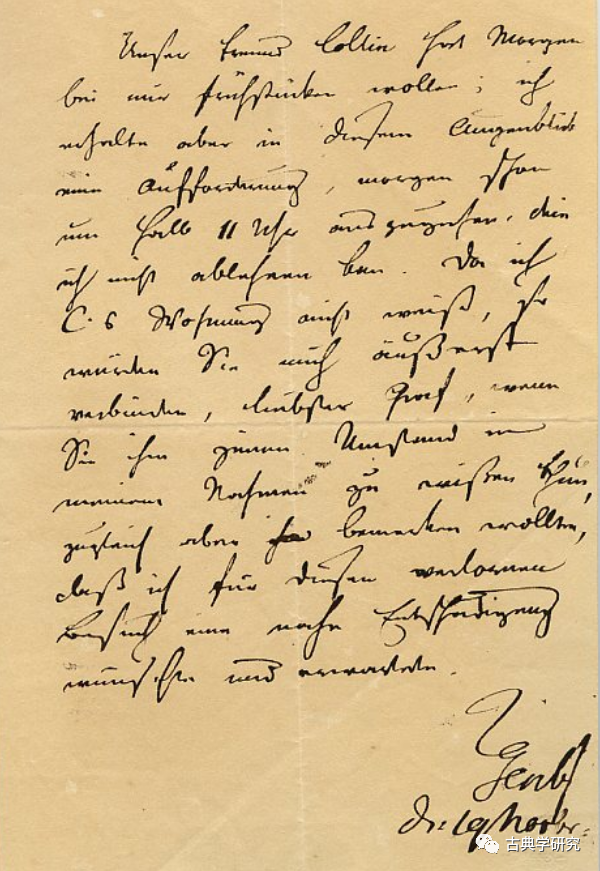 Unser Freund Collin hat Morgen
bei mir frühstücken wollen; ich
erhalte aber in diesem Augenblick
eine Aufforderung, morgen schon
um halb 11 Uhr auszugehen, die
ich nicht ablehnen kan. Da ich
C.s Wohnung nicht weiß, so
würden Sie mich äußerst
verbinden, liebster Graf, wenn
Sie ihm jenen Umstand in
meinem Nahmen zu wißen thun,
zugleich aber bemerken wollten,
daß ich für diesen verlornen
Besuch eine nahe Entschädigung
wünschte und erwartete.
Gentz
19 Nov
古典学研究